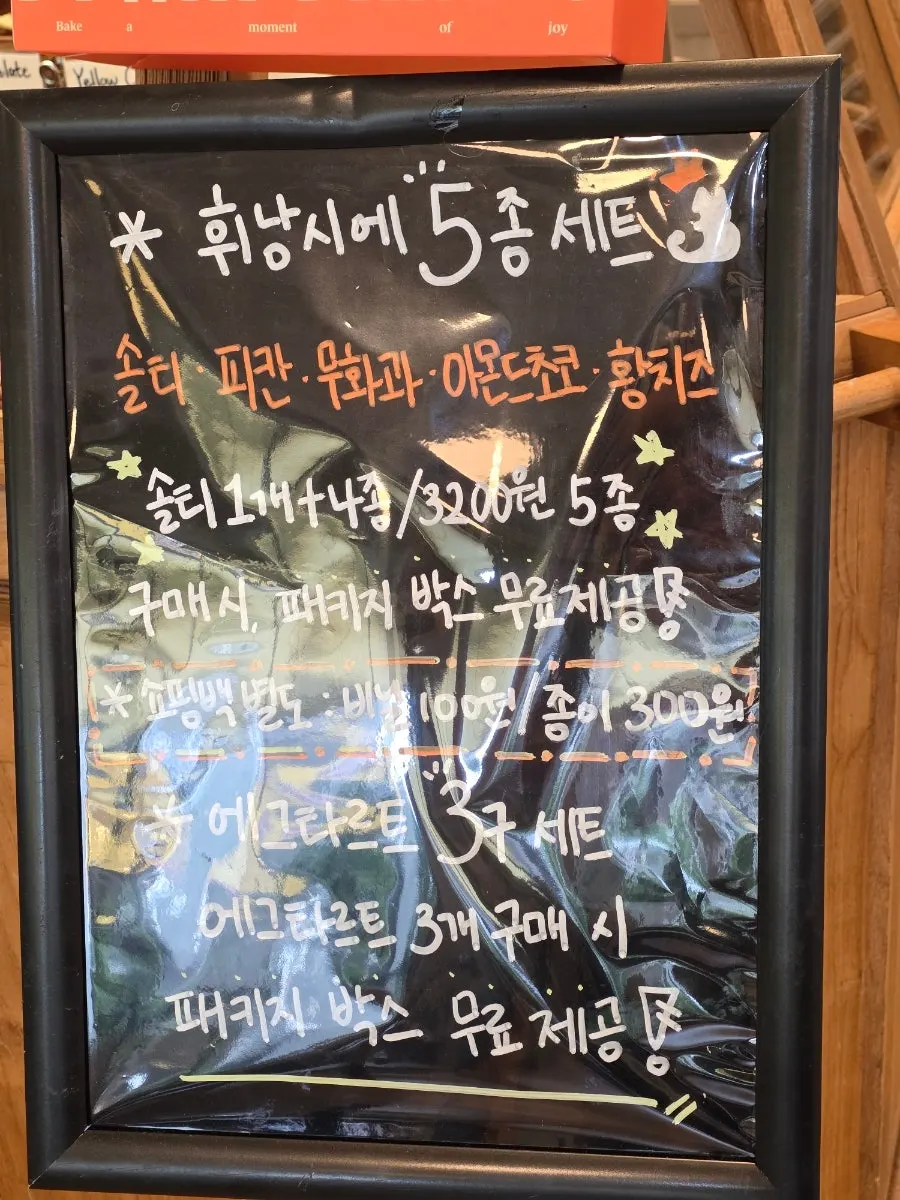 Bake a moment of joy
Yellow
* 휘낭시에 5종 세트
솔티 · 피칸 · 무화과 · 아몬드초코 · 황치즈
솔티 1개+4종 /3200원 5종
구매 시, 패키지 박스 무료 제공!
* 쇼핑백 별도 : 비닐 100원 / 종이 300원
* 에그타르트 3구 세트
에그타르트 3개 구매 시
패키지 박스 무료 제공!